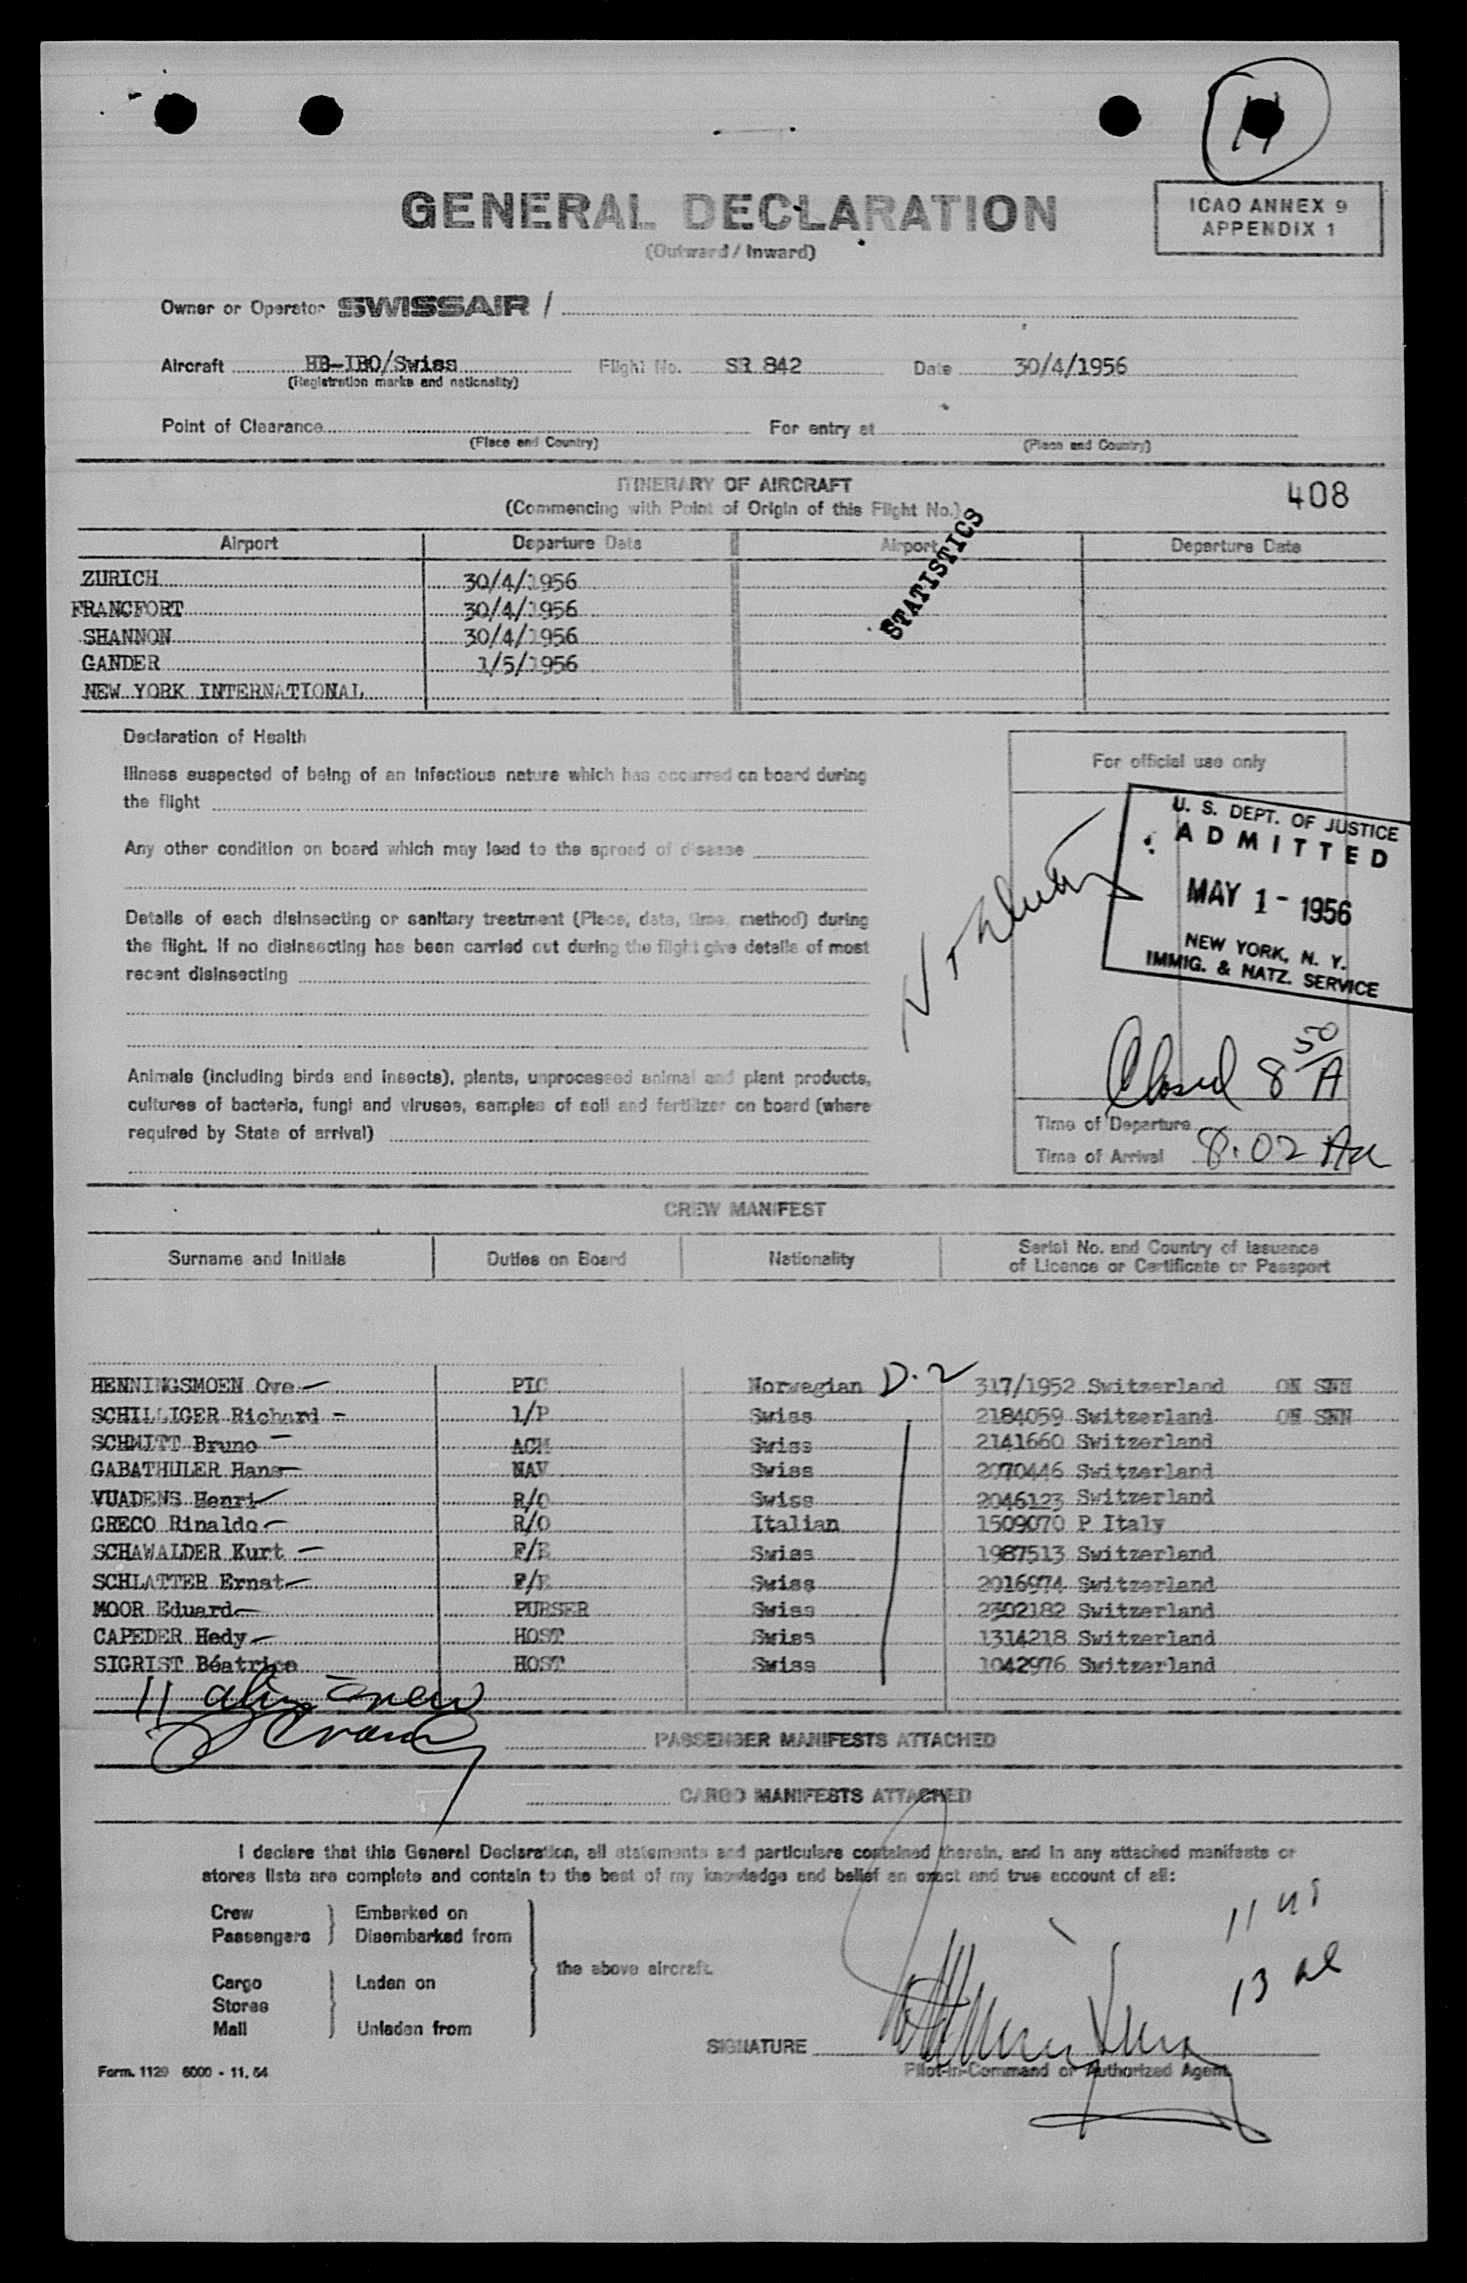 11
GENERAL DECLARATION
(Outward / Inward)
ICAO ANNEX 9
APPENDIX 1
Owner or Operator SWISSAIR /
Aircraft HB-IBO/Swiss Flight No. SR 842 Date 30/4/1956
(Registration marks and nationality)
Point of Clearance For entry at
(Place and Country) (Place and Country)
ITINERARY OF AIRCRAFT
(Commencing with Point of Origin of this Flight No.)
408
STATISTICS
Airport Departure Date Airport Departure Date
ZURICH 30/4/1956
FRANCFORT 30/4/1956
SHANNON 30/4/1956
GANDER 1/5/1956
NEW YORK INTERNATIONAL
Declaration of Health
Illness suspected of being of an infectious nature which has occurred on board during
the flight
Any other condition on board which may lead to the spread of disease
Details of each disinsecting or sanitary treatment (Place, date, time, method) during
the flight. If no disinsecting has been carried out during the flight give details of most
recent disinsecting
Animals (including birds and insects), plants, unprocessed animal and plant products,
cultures of bacteria, fungi and viruses, samples of soil and fertilizer on board (where
required by State of arrival)
For official use only
U. S. DEPT. OF JUSTICE
ADMITTED
MAY 1 - 1956
NEW YORK, N. Y.
IMMIG. & NATZ. SERVICE
Closed 8 50 A
Time of Departure
Time of Arrival 8.02 AM
CREW MANIFEST
Surname and Initials Duties on Board Nationality Serial No. and Country of Issuance
of Licence or Certificate or Passport
HENNINGSMOEN Ove PIC Norwegian D.2 317/1952 Switzerland ON SNN
SCHILLIGER Richard 1/P Swiss 2184059 Switzerland ON SNN
SCHMITT Bruno ACM Swiss 2141660 Switzerland
GABATHULER Hans NAV Swiss 2070446 Switzerland
VUADENS Henri R/O Swiss 2046123 Switzerland
GRECO Rinaldo R/O Italian 1509070 P Italy
SCHAWALDER Kurt F/E Swiss 1987513 Switzerland
SCHLATTER Ernst F/E Swiss 2016974 Switzerland
MOOR Eduard PURSER Swiss 2302182 Switzerland
CAPEDER Hedy HOST Swiss 1314218 Switzerland
SIGRIST Béatrice HOST Swiss 1042976 Switzerland
11 alien crew
PASSENGER MANIFESTS ATTACHED
CARGO MANIFESTS ATTACHED
I declare that this General Declaration, all statements and particulars contained therein, and in any attached manifests or
stores lists are complete and contain to the best of my knowledge and belief an exact and true account of all:
Crew Embarked on
Passengers Disembarked from
the above aircraft.
Cargo Laden on
Stores
Mail Unladen from
11 us
13 al
SIGNATURE
Pilot-in-Command or Authorized Agent
Form. 1129 6000 - 11. 54